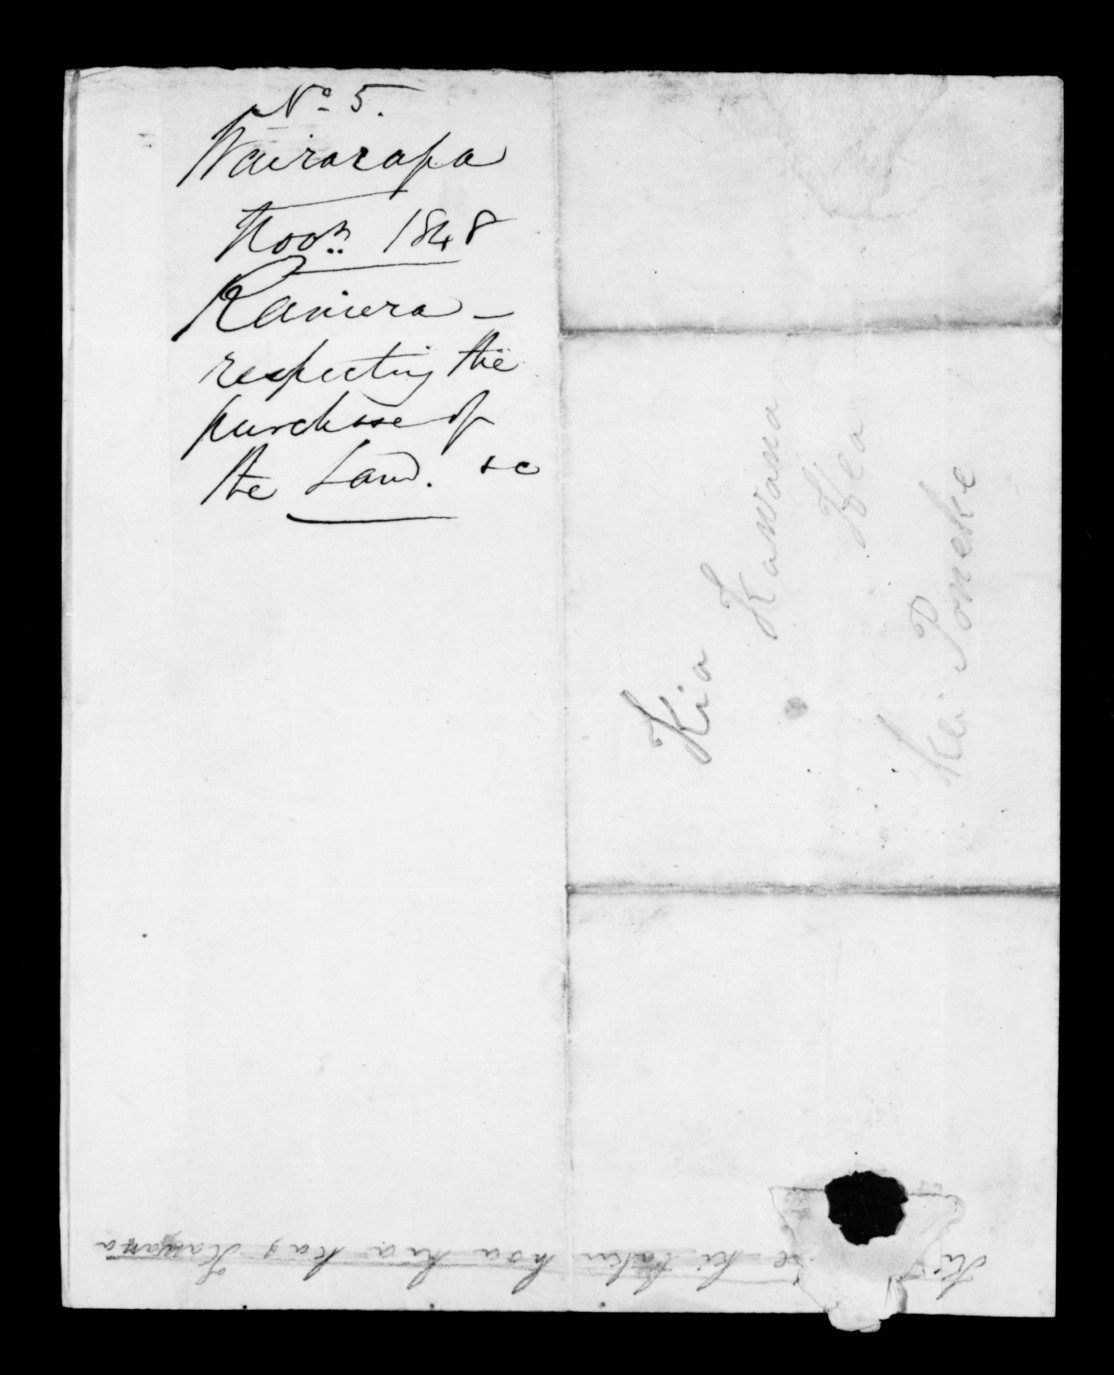 No. 5.
Wairarapa
Novr. 1848
Raniera –
respecting the
purchase of
the Land. &c
Kia Kawana
Hea
kei Poneke
ki taku hoa kia Kawana